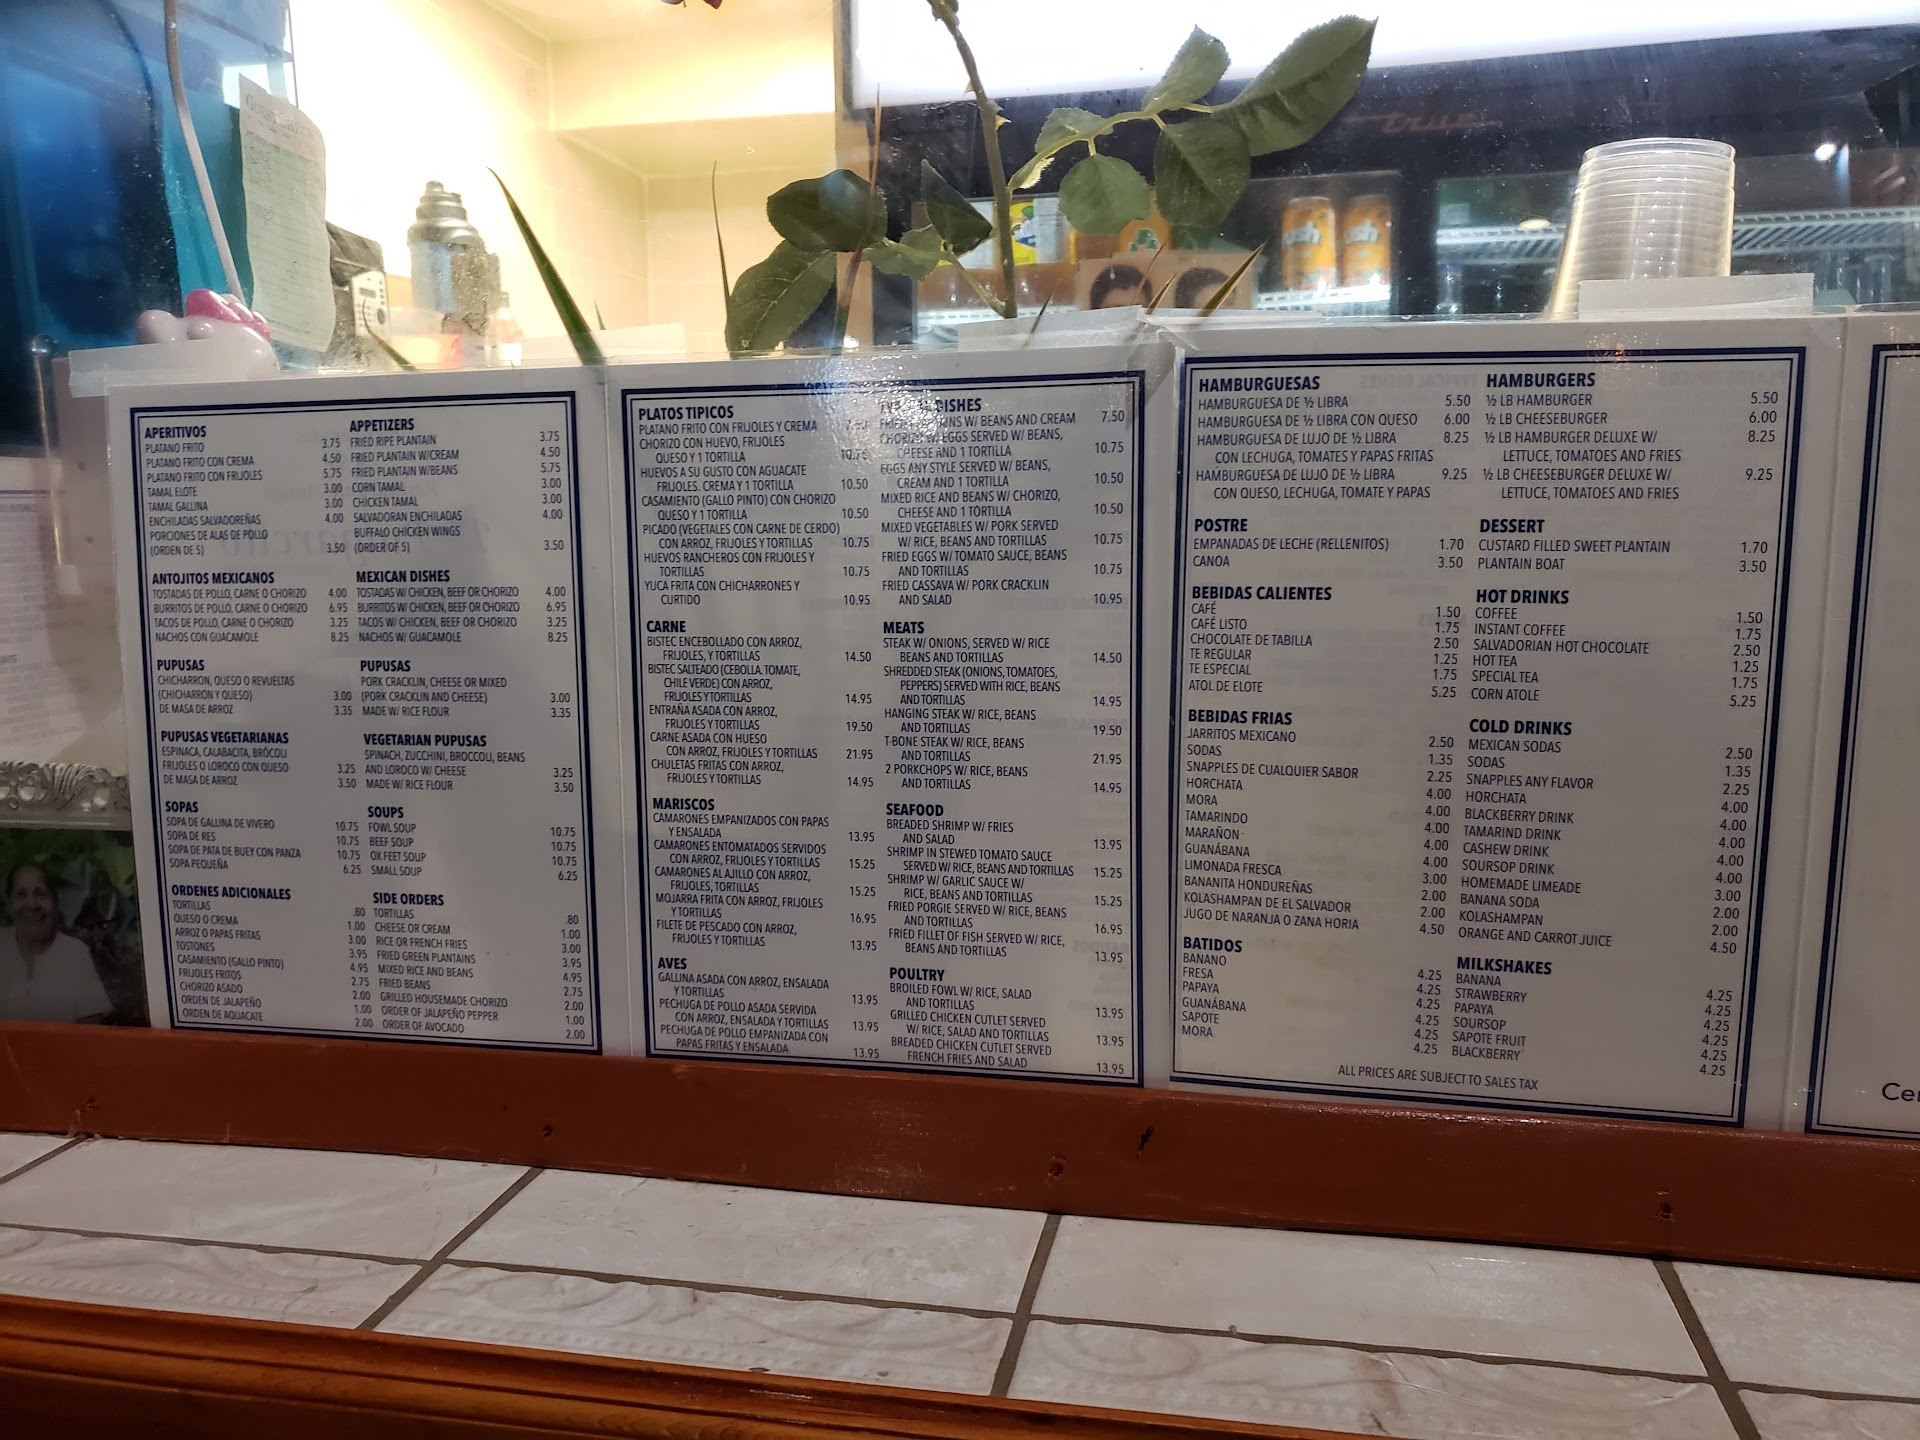 APERITIVOS
PLATANO FRITO 3.75
PLATANO FRITO CON CREMA 4.50
PLATANO FRITO CON FRIJOLES 5.75
TAMAL ELOTE 3.00
TAMAL GALLINA 3.00
ENCHILADAS SALVADOREÑAS 4.00
PORCIONES DE ALAS DE POLLO
(ORDEN DE 5) 3.50
ANTOJITOS MEXICANOS
TOSTADAS DE POLLO, CARNE O CHORIZO 4.00
BURRITOS DE POLLO, CARNE O CHORIZO 6.95
TACOS DE POLLO, CARNE O CHORIZO 3.25
NACHOS CON GUACAMOLE 8.25
PUPUSAS
CHICHARRON, QUESO O REVUELTAS
(CHICHARRON Y QUESO) 3.00
DE MASA DE ARROZ 3.35
PUPUSAS VEGETARIANAS
ESPINACA, CALABACITA, BRÓCOLI
FRIJOLES O LOROCO CON QUESO 3.25
DE MASA DE ARROZ 3.50
SOPAS
SOPA DE GALLINA DE VIVERO 10.75
SOPA DE RES 10.75
SOPA DE PATA DE BUEY CON PANZA 10.75
SOPA PEQUEÑA 6.25
ORDENES ADICIONALES
TORTILLAS .80
QUESO O CREMA 1.00
ARROZ O PAPAS FRITAS 3.00
TOSTONES 3.95
CASAMIENTO (GALLO PINTO) 4.95
FRIJOLES FRITOS 2.75
CHORIZO ASADO 2.00
ORDEN DE JALAPEÑO 1.00
ORDEN DE AQUACATE 2.00
APPETIZERS
FRIED RIPE PLANTAIN 3.75
FRIED PLANTAIN W/CREAM 4.50
FRIED PLANTAIN W/BEANS 5.75
CORN TAMAL 3.00
CHICKEN TAMAL 3.00
SALVADORAN ENCHILADAS 4.00
BUFFALO CHICKEN WINGS
(ORDER OF 5) 3.50
MEXICAN DISHES
TOSTADAS W/ CHICKEN, BEEF OR CHORIZO 4.00
BURRITOS W/ CHICKEN, BEEF OR CHORIZO 6.95
TACOS W/ CHICKEN, BEEF OR CHORIZO 3.25
NACHOS W/ GUACAMOLE 8.25
PUPUSAS
PORK CRACKLIN, CHEESE OR MIXED
(PORK CRACKLIN AND CHEESE) 3.00
MADE W/ RICE FLOUR 3.35
VEGETARIAN PUPUSAS
SPINACH, ZUCCHINI, BROCCOLI, BEANS
AND LOROCO W/ CHEESE 3.25
MADE W/ RICE FLOUR 3.50
SOUPS
FOWL SOUP 10.75
BEEF SOUP 10.75
OX FEET SOUP 10.75
SMALL SOUP 6.25
SIDE ORDERS
TORTILLAS .80
CHEESE OR CREAM 1.00
RICE OR FRENCH FRIES 3.00
FRIED GREEN PLANTAINS 3.95
MIXED RICE AND BEANS 4.95
FRIED BEANS 2.75
GRILLED HOUSEMADE CHORIZO 2.00
ORDER OF JALAPEÑO PEPPER 1.00
ORDER OF AVOCADO 2.00
PLATOS TIPICOS
PLATANO FRITO CON FRIJOLES Y CREMA
CHORIZO CON HUEVO, FRIJOLES
QUESO Y 1 TORTILLA 10.75
HUEVOS A SU GUSTO CON AGUACATE
FRIJOLES. CREMA Y 1 TORTILLA 10.50
CASAMIENTO (GALLO PINTO) CON CHORIZO
QUESO Y 1 TORTILLA 10.50
PICADO (VEGETALES CON CARNE DE CERDO)
CON ARROZ, FRIJOLES Y TORTILLAS 10.75
HUEVOS RANCHEROS CON FRIJOLES Y
TORTILLAS 10.75
YUCA FRITA CON CHICHARRONES Y
CURTIDO 10.95
CARNE
BISTEC ENCEBOLLADO CON ARROZ,
FRIJOLES, Y TORTILLAS 14.50
BISTEC SALTEADO (CEBOLLA. TOMATE,
CHILE VERDE) CON ARROZ,
FRIJOLES Y TORTILLAS 14.95
ENTRAÑA ASADA CON ARROZ,
FRIJOLES Y TORTILLAS 19.50
CARNE ASADA CON HUESO
CON ARROZ, FRIJOLES Y TORTILLAS 21.95
CHULETAS FRITAS CON ARROZ,
FRIJOLES Y TORTILLAS 14.95
MARISCOS
CAMARONES EMPANIZADOS CON PAPAS
Y ENSALADA 13.95
CAMARONES ENTOMATADOS SERVIDOS
CON ARROZ, FRIJOLES Y TORTILLAS 15.25
CAMARONES AL AJILLO CON ARROZ,
FRIJOLES, TORTILLAS 15.25
MOJARRA FRITA CON ARROZ, FRIJOLES
Y TORTILLAS 16.95
FILETE DE PESCADO CON ARROZ,
FRIJOLES Y TORTILLAS 13.95
AVES
GALLINA ASADA CON ARROZ, ENSALADA
Y TORTILLAS 13.95
PECHUGA DE POLLO ASADA SERVIDA
CON ARROZ, ENSALADA Y TORTILLAS 13.95
PECHUGA DE POLLO EMPANIZADA CON
PAPAS FRITAS Y ENSALADA 13.95
DISHES
W/ BEANS AND CREAM 7.50
CHORIZO W/ EGGS SERVED W/ BEANS,
CHEESE AND 1 TORTILLA 10.75
EGGS ANY STYLE SERVED W/ BEANS,
CREAM AND 1 TORTILLA 10.50
MIXED RICE AND BEANS W/ CHORIZO,
CHEESE AND 1 TORTILLA 10.50
MIXED VEGETABLES W/ PORK SERVED
W/ RICE, BEANS AND TORTILLAS 10.75
FRIED EGGS W/ TOMATO SAUCE, BEANS
AND TORTILLAS 10.75
FRIED CASSAVA W/ PORK CRACKLIN
AND SALAD 10.95
MEATS
STEAK W/ ONIONS, SERVED W/ RICE
BEANS AND TORTILLAS 14.50
SHREDDED STEAK (ONIONS, TOMATOES,
PEPPERS) SERVED WITH RICE, BEANS
AND TORTILLAS 14.95
HANGING STEAK W/ RICE, BEANS
AND TORTILLAS 19.50
T-BONE STEAK W/ RICE, BEANS
AND TORTILLAS 21.95
2 PORKCHOPS W/ RICE, BEANS
AND TORTILLAS 14.95
SEAFOOD
BREADED SHRIMP W/ FRIES
AND SALAD 13.95
SHRIMP IN STEWED TOMATO SAUCE
SERVED W/ RICE, BEANS AND TORTILLAS 15.25
SHRIMP W/ GARLIC SAUCE W/
RICE, BEANS AND TORTILLAS 15.25
FRIED PORGIE SERVED W/ RICE, BEANS
AND TORTILLAS 16.95
FRIED FILLET OF FISH SERVED W/ RICE,
BEANS AND TORTILLAS 13.95
POULTRY
BROILED FOWL W/ RICE, SALAD
AND TORTILLAS 13.95
GRILLED CHICKEN CUTLET SERVED
W/ RICE, SALAD AND TORTILLAS 13.95
BREADED CHICKEN CUTLET SERVED
FRENCH FRIES AND SALAD 13.95
HAMBURGUESAS
HAMBURGUESA DE ½ LIBRA 5.50
HAMBURGUESA DE ½ LIBRA CON QUESO 6.00
HAMBURGUESA DE LUJO DE ½ LIBRA 8.25
CON LECHUGA, TOMATES Y PAPAS FRITAS
HAMBURGUESA DE LUJO DE ½ LIBRA 9.25
CON QUESO, LECHUGA, TOMATE Y PAPAS
POSTRE
EMPANADAS DE LECHE (RELLENITOS) 1.70
CANOA 3.50
BEBIDAS CALIENTES
CAFÉ 1.50
CAFÉ LISTO 1.75
CHOCOLATE DE TABILLA 2.50
TE REGULAR 1.25
TE ESPECIAL 1.75
ATOL DE ELOTE 5.25
BEBIDAS FRIAS
JARRITOS MEXICANO 2.50
SODAS 1.35
SNAPPLES DE CUALQUIER SABOR 2.25
HORCHATA 4.00
MORA 4.00
TAMARINDO 4.00
MARAÑON 4.00
GUANÁBANA 4.00
LIMONADA FRESCA 3.00
BANANITA HONDUREÑAS 2.00
KOLASHAMPAN DE EL SALVADOR 2.00
JUGO DE NARANJA O ZANA HORIA 4.50
BATIDOS
BANANO 4.25
FRESA 4.25
PAPAYA 4.25
GUANÁBANA 4.25
SAPOTE 4.25
MORA 4.25
HAMBURGERS
½ LB HAMBURGER 5.50
½ LB CHEESEBURGER 6.00
½ LB HAMBURGER DELUXE W/ 8.25
LETTUCE, TOMATOES AND FRIES
½ LB CHEESEBURGER DELUXE W/ 9.25
LETTUCE, TOMATOES AND FRIES
DESSERT
CUSTARD FILLED SWEET PLANTAIN 1.70
PLANTAIN BOAT 3.50
HOT DRINKS
COFFEE 1.50
INSTANT COFFEE 1.75
SALVADORIAN HOT CHOCOLATE 2.50
HOT TEA 1.25
SPECIAL TEA 1.75
CORN ATOLE 5.25
COLD DRINKS
MEXICAN SODAS 2.50
SODAS 1.35
SNAPPLES ANY FLAVOR 2.25
HORCHATA 4.00
BLACKBERRY DRINK 4.00
TAMARIND DRINK 4.00
CASHEW DRINK 4.00
SOURSOP DRINK 4.00
HOMEMADE LIMEADE 3.00
BANANA SODA 2.00
KOLASHAMPAN 2.00
ORANGE AND CARROT JUICE 4.50
MILKSHAKES
BANANA 4.25
STRAWBERRY 4.25
PAPAYA 4.25
SOURSOP 4.25
SAPOTE FRUIT 4.25
BLACKBERRY 4.25
ALL PRICES ARE SUBJECT TO SALES TAX